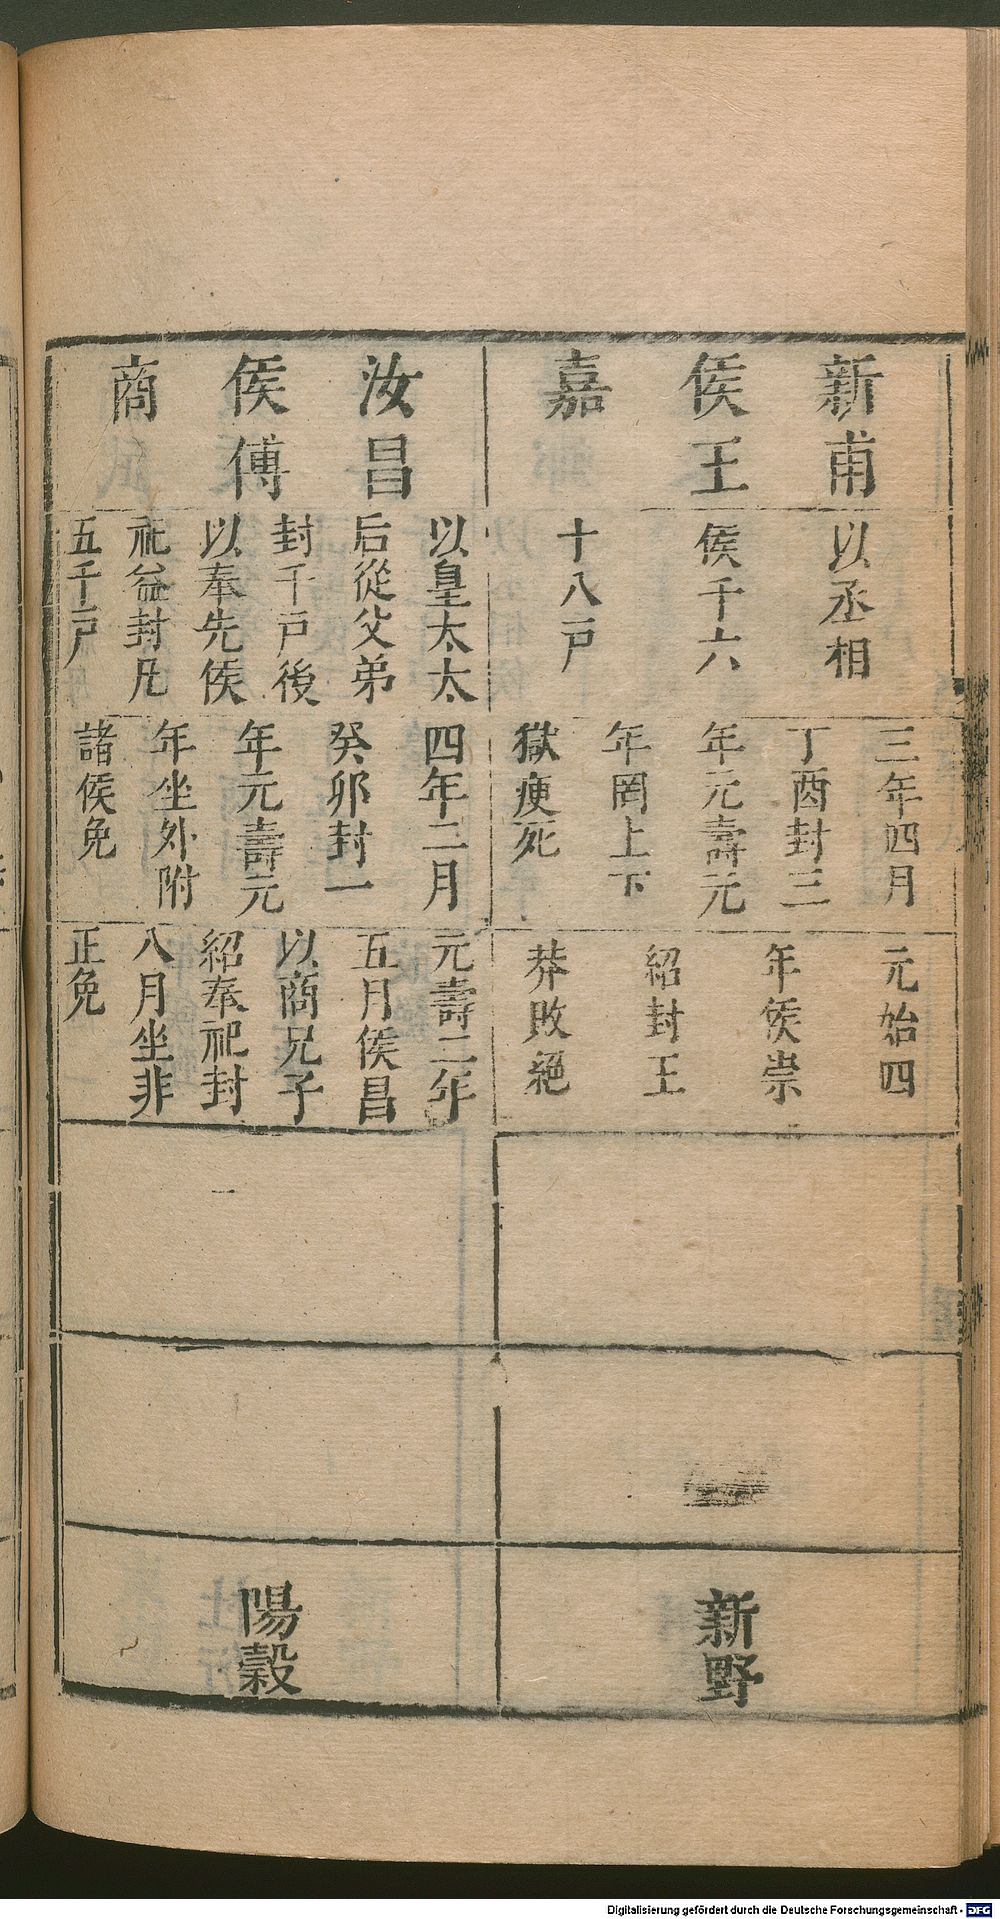 新甫
侯王
嘉
以丞相
侯千六
十八戸
三年四月
丁酉封三
年元壽元
年罔上下
獄瘐死
元始四
年侯崇
紹封王
莽敗絕
新野
汝昌
侯傅
商
以皇太太
后從父弟
封千戸後
以奉先侯
祀益封凡
五千戸
四年二月
癸卯封一
年元壽元
年坐外附
諸侯免
元壽二年
五月侯昌
以商兄子
紹奉祀封
八月坐非
正免
陽穀
Digitalisierung gefördert durch die Deutsche Forschungsgemeinschaft - DFG